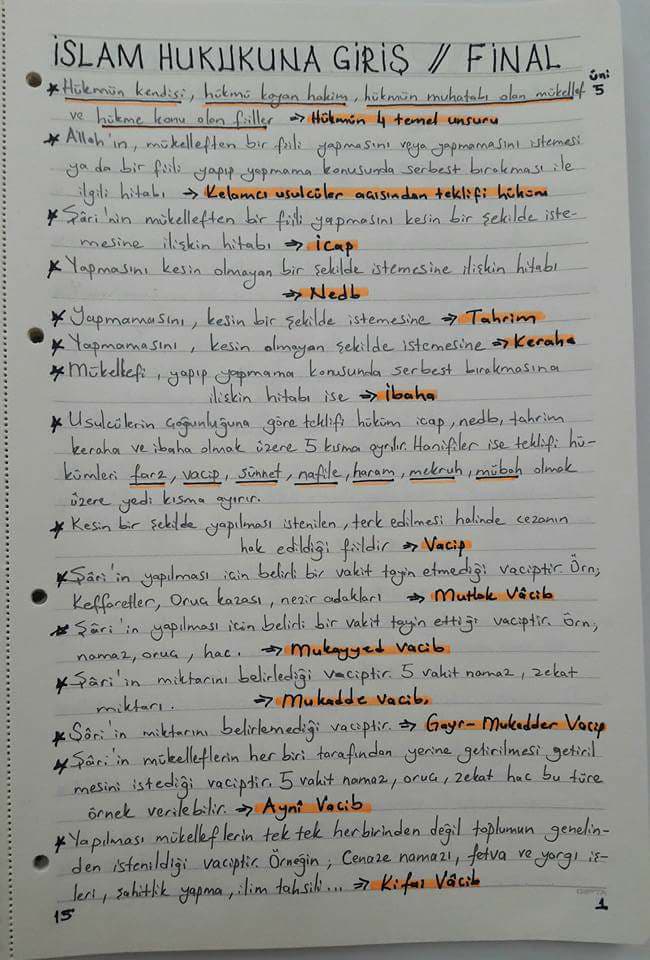 İSLAM HUKUKUNA GİRİŞ // FİNAL
üni 5
* Hükmün kendisi, hükmü koyan hakim, hükmün muhatabı olan mükellef
ve hükme konu olan fiiller ⇒ Hükmün 4 temel unsuru
* Allah'ın, mükelleften bir fiili yapmasını veya yapmamasını istemesi
ya da bir fiili yapıp yapmama konusunda serbest bırakması ile
ilgili hitabı → Kelamcı usulcüler açısından teklifi hüküm
* Şâri'nin mükelleften bir fiili yapmasını kesin bir şekilde iste-
mesine ilişkin hitabı ⇒ İcap
* Yapmasını kesin olmayan bir şekilde istemesine ilişkin hitabı
⇒ Nedb
* Yapmamasını, kesin bir şekilde istemesine ⇒ Tahrim
* Yapmamasını, kesin olmayan şekilde istemesine ⇒ Keraha
* Mükellefi, yapıp yapmama konusunda serbest bırakmasına
ilişkin hitabı ise ⇒ İbaha
* Usulcülerin çoğunluğuna göre teklifi hüküm icap, nedb, tahrim
keraha ve ibaha olmak üzere 5 kısma ayrılır. Hanifiler ise teklifi hü-
kümleri farz, vacip, sünnet, nafile, haram, mekruh, mübah olmak
üzere yedi kısma ayırır.
* Kesin bir şekilde yapılması istenilen, terk edilmesi halinde cezanın
hak edildiği fiildir ⇒ Vacip
* Şâri'in yapılması için belirli bir vakit tayin etmediği vaciptir. Örn;
Keffaretler, Oruç kazası, nezir adakları ⇒ Mutlak Vâcib
* Şâri'in yapılması için belirli bir vakit tayin ettiği vaciptir. Örn,
namaz, oruç, hac. ⇒ Mukayyed vacib
* Şâri'in miktarını belirlediği vaciptir. 5 vakit namaz, zekat
miktarı. ⇒ Mukadde vacib.
* Şâri'in miktarını belirlemediği vaciptir. ⇒ Gayr-Mukadder Vacip
* Şâri'in mükelleflerin her biri tarafından yerine getirilmesi getiril
mesini istediği vaciptir. 5 vakit namaz, oruç, zekat hac bu türe
örnek verilebilir. ⇒ Aynî Vacib
* Yapılması mükelleflerin tek tek herbirinden değil toplumun genelin-
den istenildiği vaciptir. Örneğin; Cenaze namazı, fetva ve yargı iş-
leri, şahitlik yapma, ilim tahsili... ⇒ Kifai Vâcib
15
1